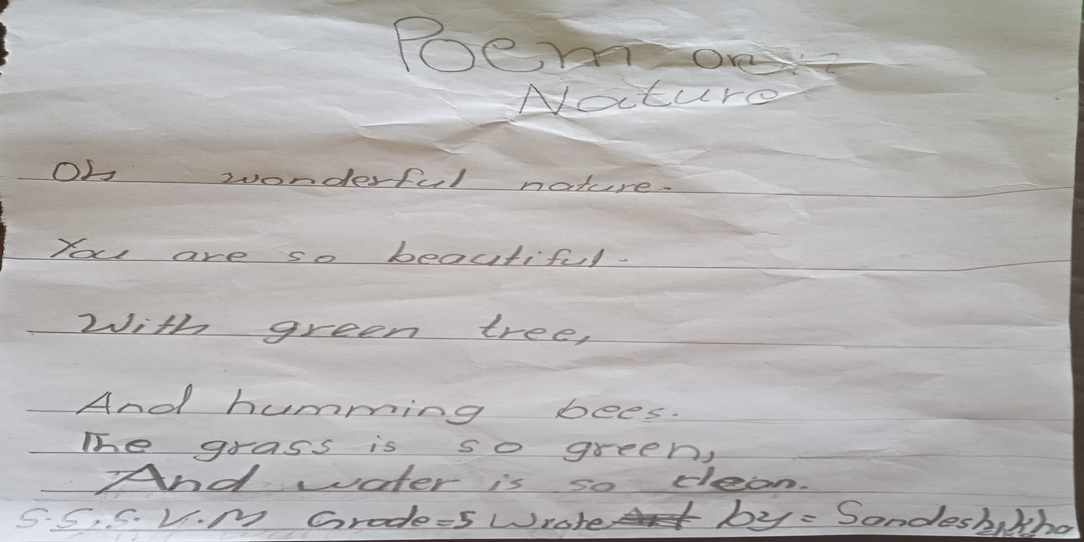 Poem on
Nature
Oh wonderful nature.
You are so beautiful.
With green tree,
And humming bees.
The grass is so green,
And water is so clean.
S.S.S.V.M Grade=5 Wrote by= Sandesh